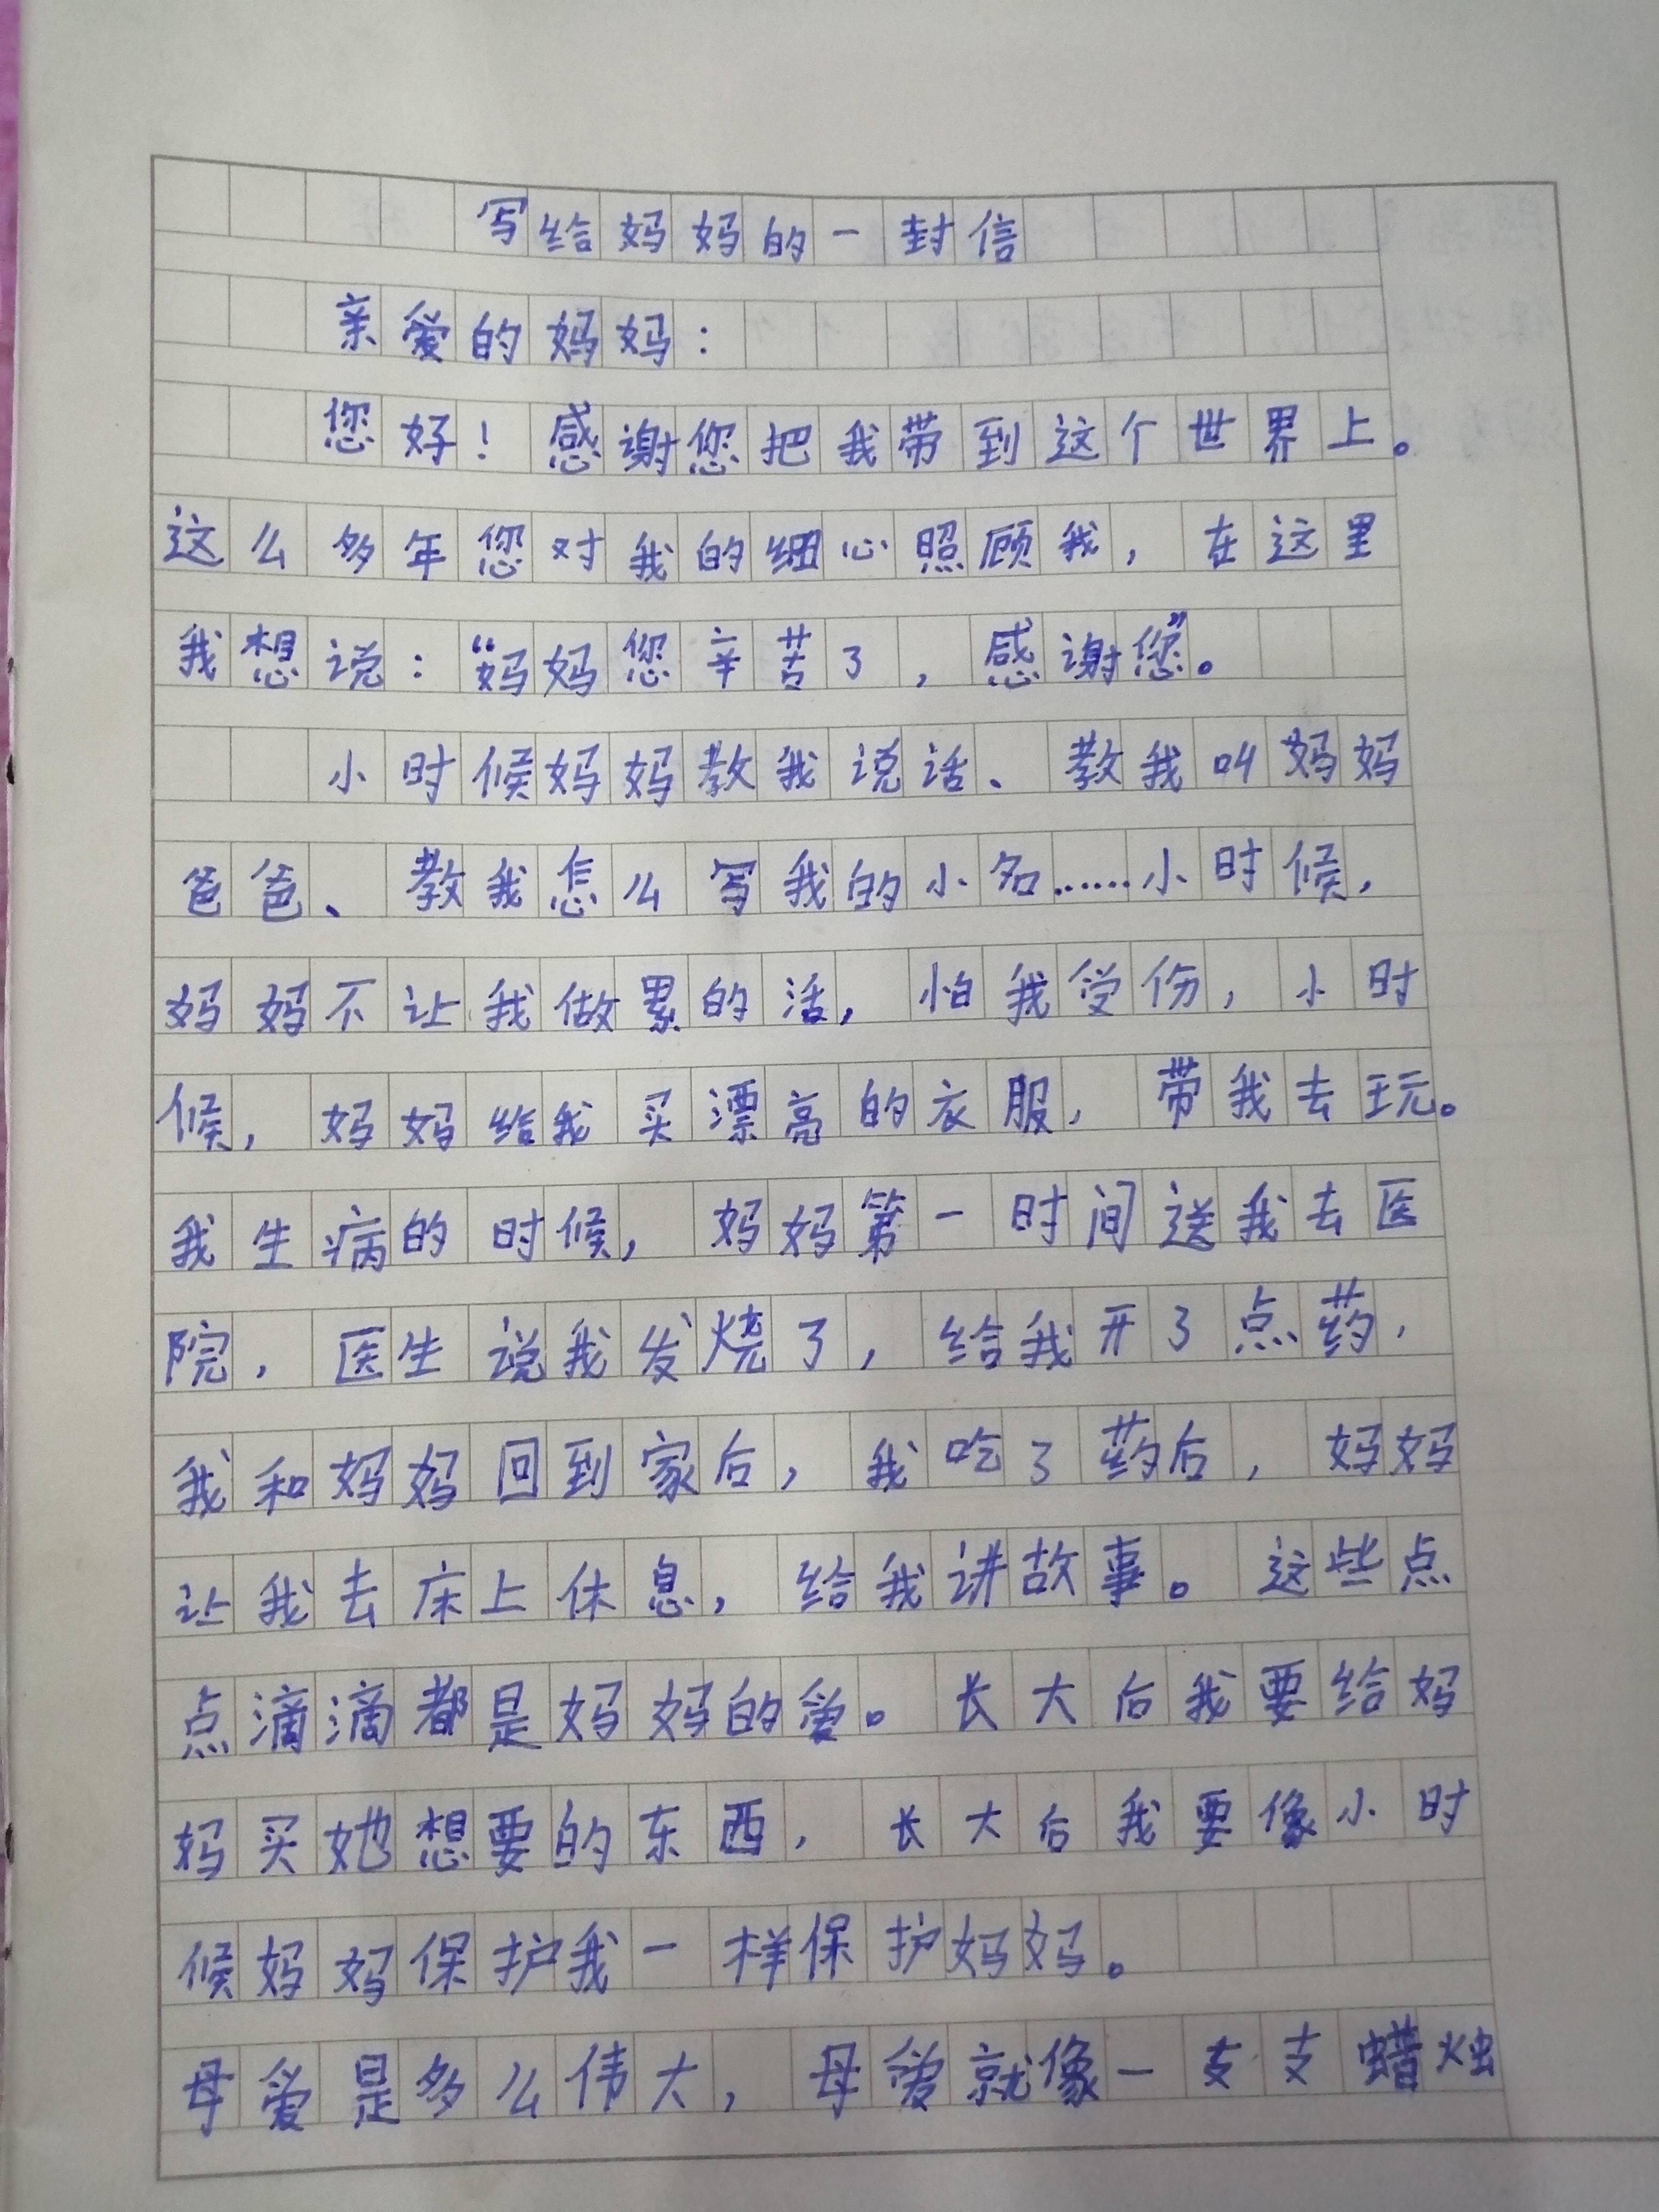 写给妈妈的一封信
亲爱的妈妈：
您好！感谢您把我带到这个世界上。
这么多年您对我的细心照顾我，在这里
我想说：“妈妈您辛苦了，感谢您”。
小时候妈妈教我说话、教我叫妈妈
爸爸、教我怎么写我的小名……小时候，
妈妈不让我做累的活，怕我受伤，小时
候，妈妈给我买漂亮的衣服，带我去玩。
我生病的时候，妈妈第一时间送我去医
院，医生说我发烧了，给我开了点药，
我和妈妈回到家后，我吃了药后，妈妈
让我去床上休息，给我讲故事。这些点
点滴滴都是妈妈的爱。长大后我要给妈
妈买她想要的东西，长大后我要像小时
候妈妈保护我一样保护妈妈。
母爱是多么伟大，母爱就像一支支蜡烛